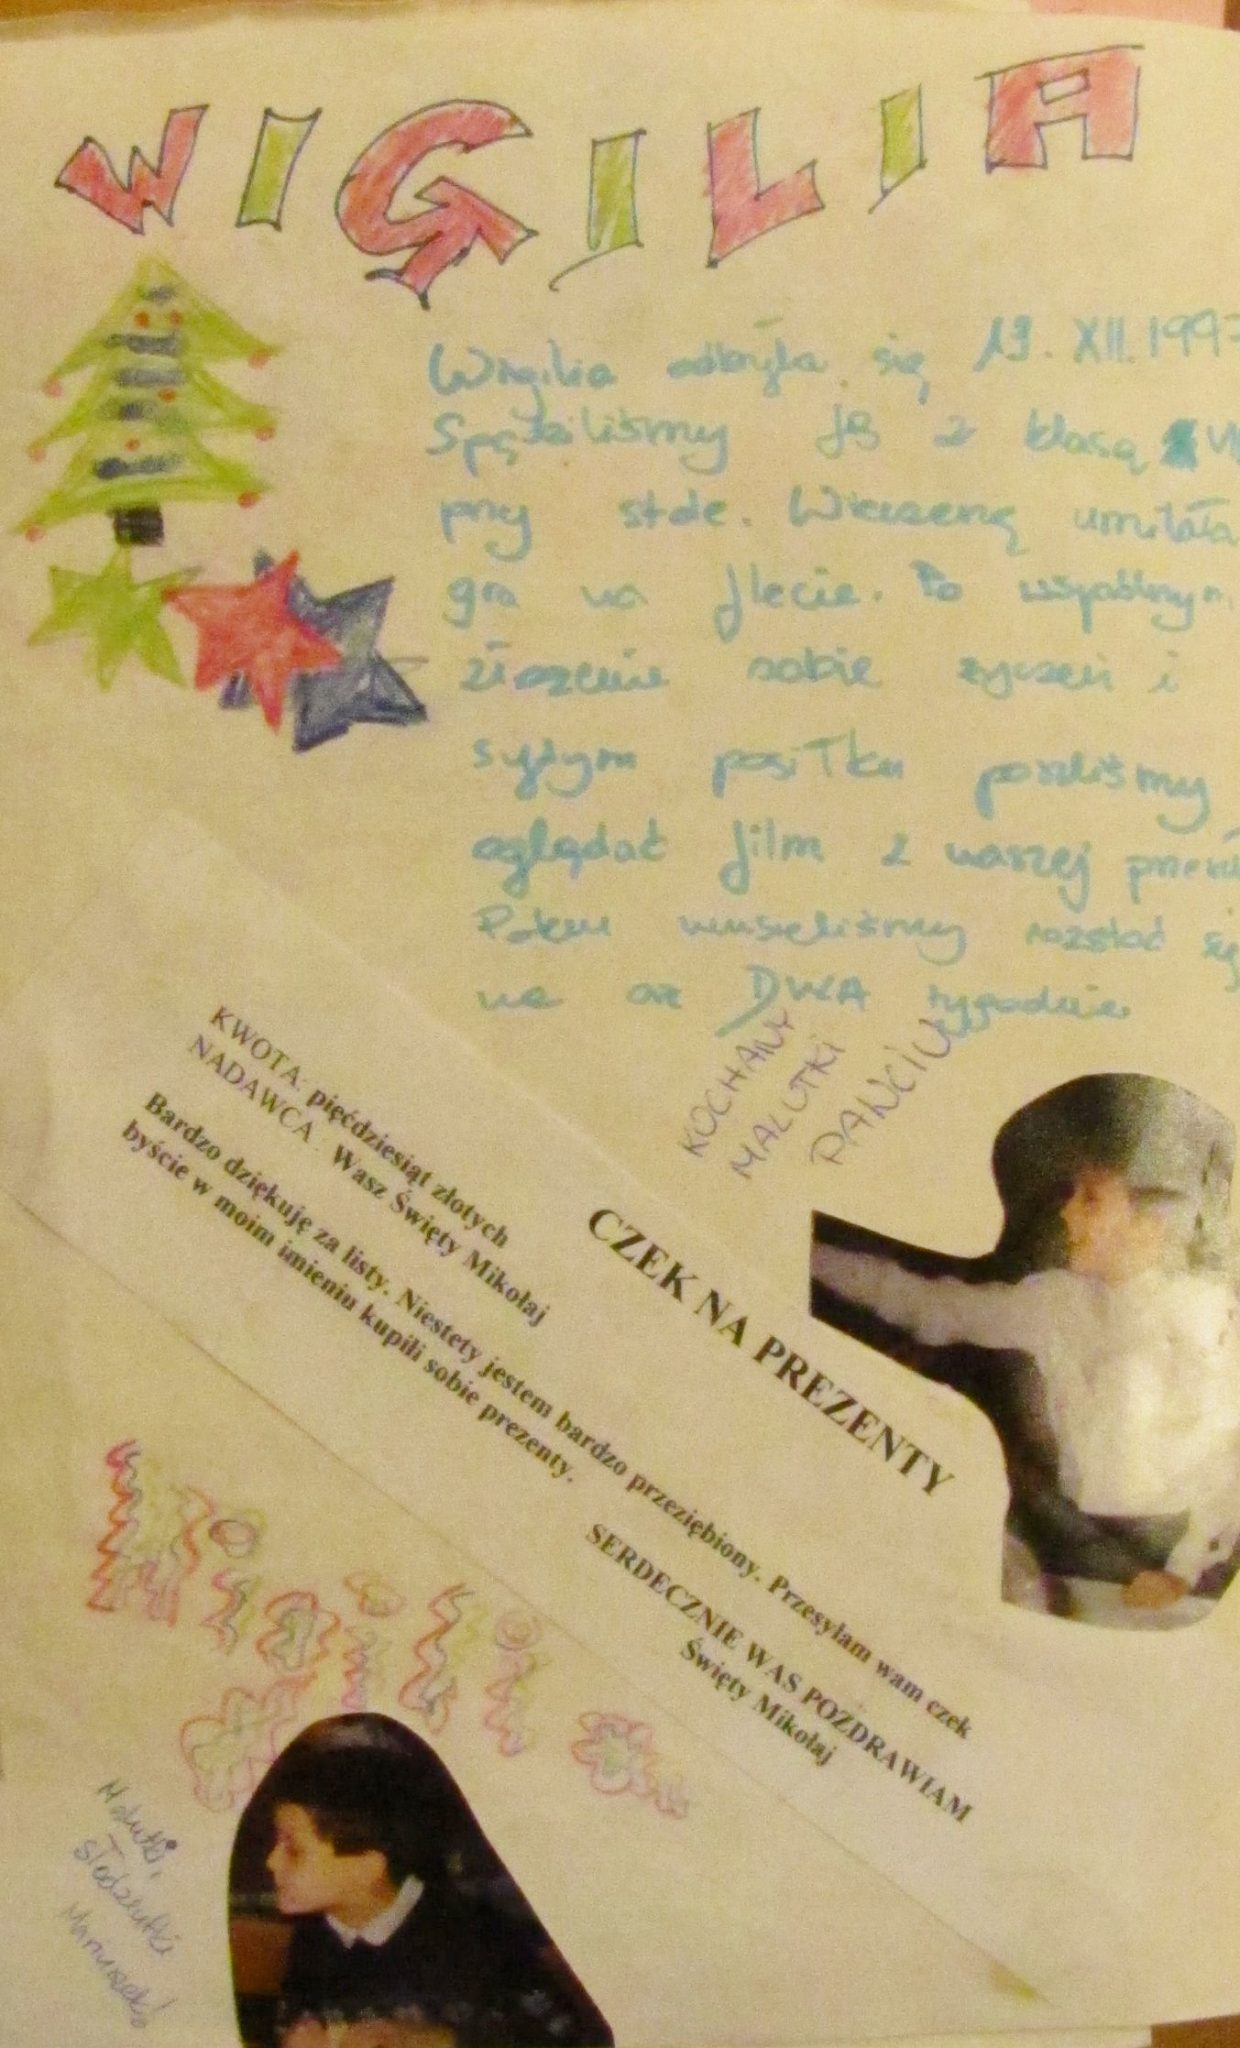 WIGILIA
Wigilia odbyła się 19. XII. 1997
Spędziliśmy ją z klasą
przy stole. Wieczerzę umilała
gra na flecie. Po wspólnym
złożeniu sobie życzeń i
sytym posiłku poszliśmy
oglądać film z naszej
Potem musieliśmy rozstać się
na aż DWA tygodnie
KOCHANY
MALUTKI
PAWCIU
CZEK NA PREZENTY
KWOTA: pięćdziesiąt złotych
NADAWCA: Wasz Święty Mikołaj
Bardzo dziękuję za listy. Niestety jestem bardzo przeziębiony. Przesyłam wam czek
byście w moim imieniu kupili sobie prezenty.
SERDECZNIE WAS POZDRAWIAM
Święty Mikołaj
Malutki,
słodziutki
Mariuszek!